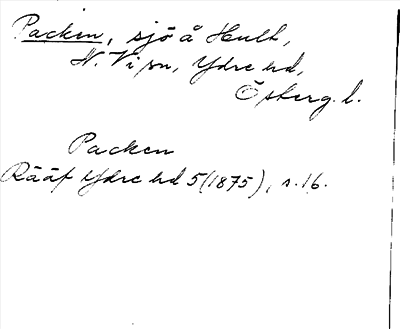 Packen, sjö å Hult,
N. Vi sn, Ydre hd,
Österg. l.
Packen
Rääf Ydre hd 5 (1875), s. 16.